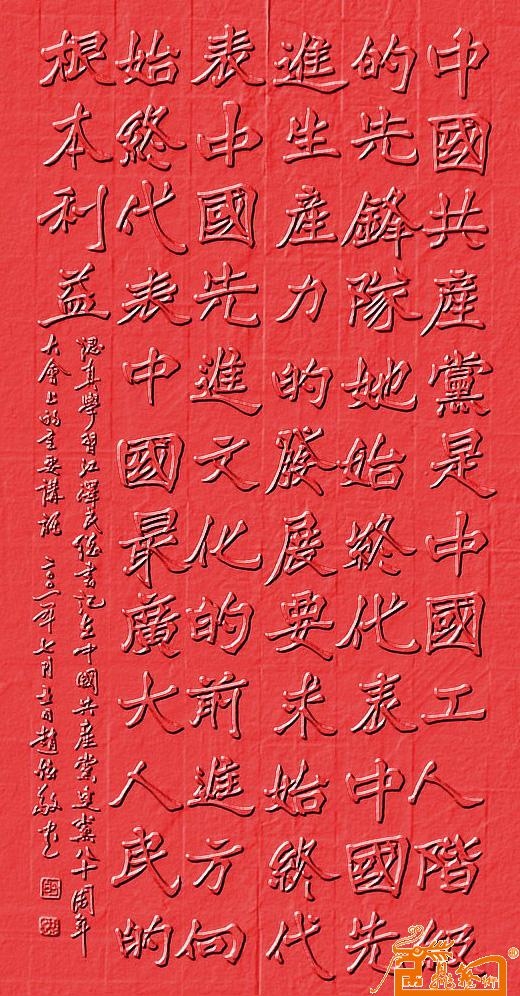 中國共產黨是中國工人階級
的先鋒隊她始終代表中國先
進生產力的發展要求始終代
表中國先進文化的前進方向
始終代表中國最廣大人民的
根本利益
認真學習江澤民總書記在中國共產黨建黨八十周年
大會上的重要講話 二〇〇一年七月 日趙